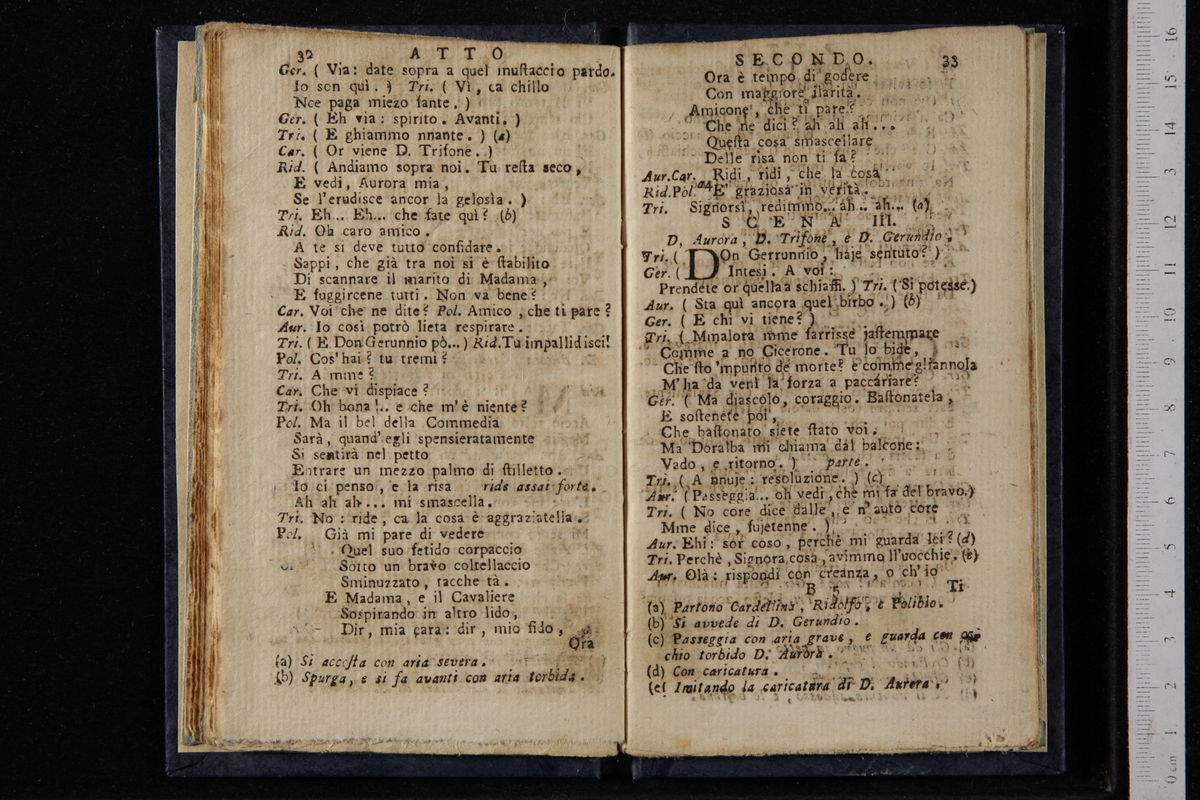 32 ATTO
Ger. ( Via: date sopra a quel muſtaccio pardo.
Io son quì. ) Tri. ( Vi, ca chillo
Nce paga miezo ſante. )
Ger. ( Eh via: spirito. Avanti. )
Tri. ( E ghiammo nnante. ) (a)
Car. ( Or viene D. Trifone. )
Rid. ( Andiamo sopra noi. Tu reſta seco,
E vedi, Aurora mia,
Se l'erudisce ancor la gelosìa. )
Tri. Eh... Eh... che fate quì? (b)
Rid. Oh caro amico.
A te si deve tutto confidare.
Sappi, che già tra noi si è ſtabilito
Di scannare il marito di Madama,
E fuggircene tutti. Non va bene?
Car. Voi che ne dite? Pol. Amico, che ti pare?
Aur. Io così potrò lieta respirare.
Tri. ( E Don Gerunnio pò...) Rid. Tu impallidisci!
Pol. Cos'hai? tu tremi?
Tri. A mme?
Car. Che vi dispiace?
Tri. Oh bona!.. e che m'è niente?
Pol. Ma il bel della Commedia
Sarà, quand'egli spensieratamente
Si sentirà nel petto
Entrare un mezzo palmo di ſtilletto.
Io ci penso, e la risa ride assai forte.
Ah ah ah... mi smascella.
Tri. No: ride, ca la cosa è aggraziatella.
Pol. Già mi pare di vedere
Quel suo fetido corpaccio
Sotto un bravo coltellaccio
Sminuzzato, tacche tà.
E Madama, e il Cavaliere
Sospirando in altro lido,
Dir, mia cara: dir, mio fido,
Ora
(a) Si accoſta con aria severa.
(b) Spurga, e si fa avanti con aria torbida.
SECONDO. 33
Ora è tempo di godere
Con maggiore ilarità.
Amicone, che ti pare?
Che ne dici? ah ah ah...
Queſta cosa smascellare
Delle risa non ti fa?
Aur.Car. Ridi, ridi, che la cosa
Rid.Pol. a4 E' graziosa in verità.
Tri. Signorsì, redimmo... ah.. ah... (a)
SCENA III.
D. Aurora, D. Trifone, e D. Gerundio.
Tri. ( DOn Gerrunnio, haje sentuto? )
Ger. ( Intesi. A voi:
Prendete or quella a schiaffi. ) Tri. ( Si potesse.)
Aur. ( Sta quì ancora quel birbo. ) (b)
Ger. ( E chi vi tiene? )
Tri. ( Mmalora mme farrisse jaſtemmare
Comme a no Cicerone. Tu lo bide,
Che ſto 'mpunto de morte? e comme gliannola
M'ha da venì la forza a paccariare?
Ger. ( Ma diascolo, coraggio. Baſtonatela,
E soſtenete poi,
Che baſtonato siete ſtato voi.
Ma Doralba mi chiama dal balcone:
Vado, e ritorno. ) parte.
Tri. ( A nnuje: resoluzione. ) (c)
Aur. ( Passeggia... oh vedi, chè mi fa del bravo.)
Tri. ( No core dice dalle, e n'auto core
Mme dice, fujetenne. )
Aur. Ehi: sor coso, perchè mi guarda lei? (d)
Tri. Perchè, Signora cosa, avimmo ll'uocchie. (e)
Aur. Olà: rispondi con creanza, o ch'io
B 5 Ti
(a) Partono Cardellina, Ridolfo, e Polibio.
(b) Si avvede di D. Gerundio.
(c) Passeggia con aria grave, e guarda con oc-
chio torbido D. Aurora.
(d) Con caricatura.
(e( Imitando la caricatura di D. Aurora.